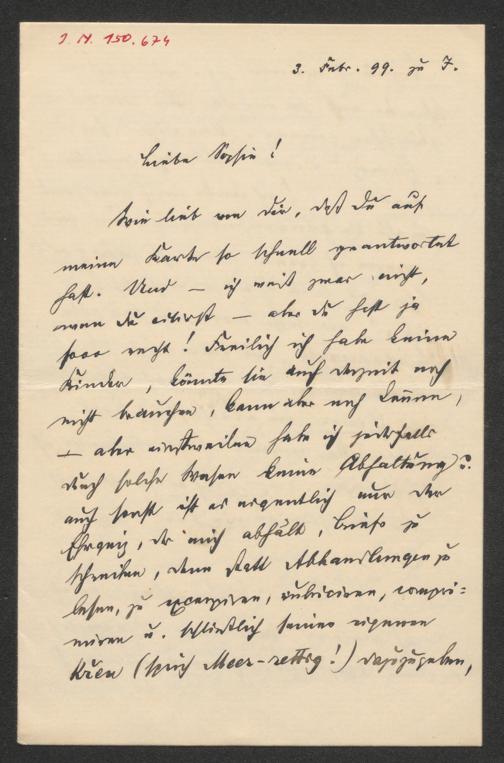 J. N. 150.674
3. Febr. 99. zu F.
Liebe Sophie!
Wie lieb von Dir, daß Du auf
meine Karte so schnell geantwortet
hast. Und – ich weiß zwar nicht,
wen Du citirst – aber Du hast ja
sooo recht! Freilich ich habe keine
Kinder, könnte sie auch derzeit noch
nicht brauchen, kann aber noch kommen,
– aber einstweilen habe ich jedenfalls
durch solche Wesen keine Abhaltung;
auch sonst ist es eigentlich nur der
Ehrgeiz, der mich abhält, Briefe zu
schreiben, denn statt Abhandlungen zu
lesen, zu excerpiren, rubriciren, compri=
miren u. schließlich seinen eigenen
Kren (sprich Meer-rettig!) dazuzugeben,